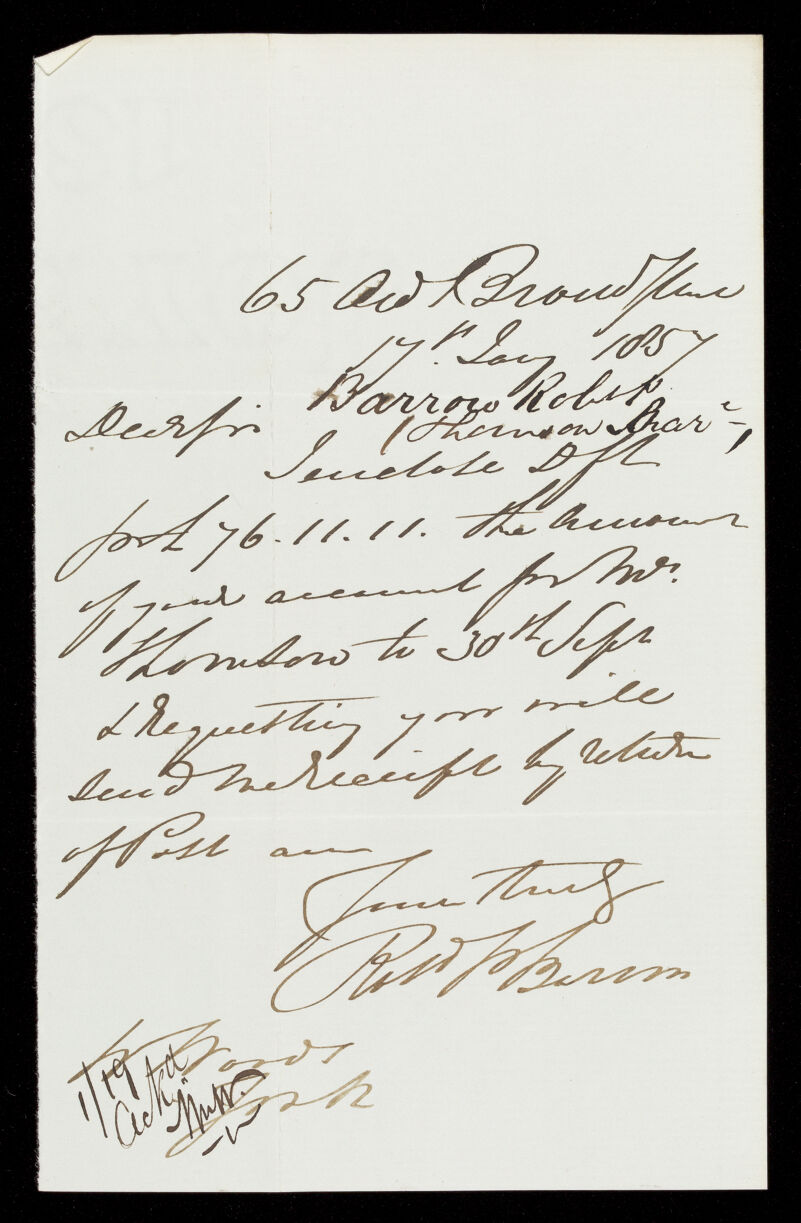 65 Old Broad Street
17th Jany 1857
Barrow Robt
Dear Sir
(Thornson
I enclose Dft
for £ 76.11.11. the amount
of your account for Mrs.
Thornson to 30th Sept
& Requesting you will
send me receipt by return
of Post am
Yours truly
Robt Barrow
Woods
York
1/19
Ackd